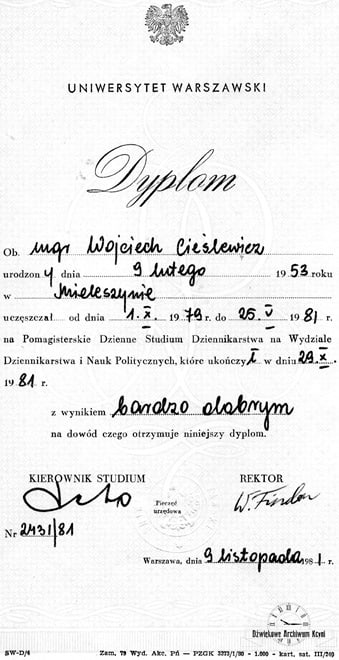 UNIWERSYTET WARSZAWSKI
Dyplom
Ob. mgr Wojciech Cieślewicz
urodzony dnia 9 lutego 1953 roku
w Mieleszynie
uczęszczał od dnia 1.X. 1979 r. do 25.V 1981 r.
na Pomagisterskie Dzienne Studium Dziennikarstwa na Wydziale
Dziennikarstwa i Nauk Politycznych, które ukończył w dniu 29.X.
1981 r.
z wynikiem bardzo dobrym
na dowód czego otrzymuje niniejszy dyplom.
KIEROWNIK STUDIUM REKTOR
Pieczęć
urzędowa
Nr 2431/81
Warszawa, dnia 9 listopada 1981 r.
Dźwiękowe Archiwum Kcyni
SW-D/6 Zam. 79 Wyd. Akc. Pń — PZGK 3373/1/80 - 1.000 - kart. sat. III/240